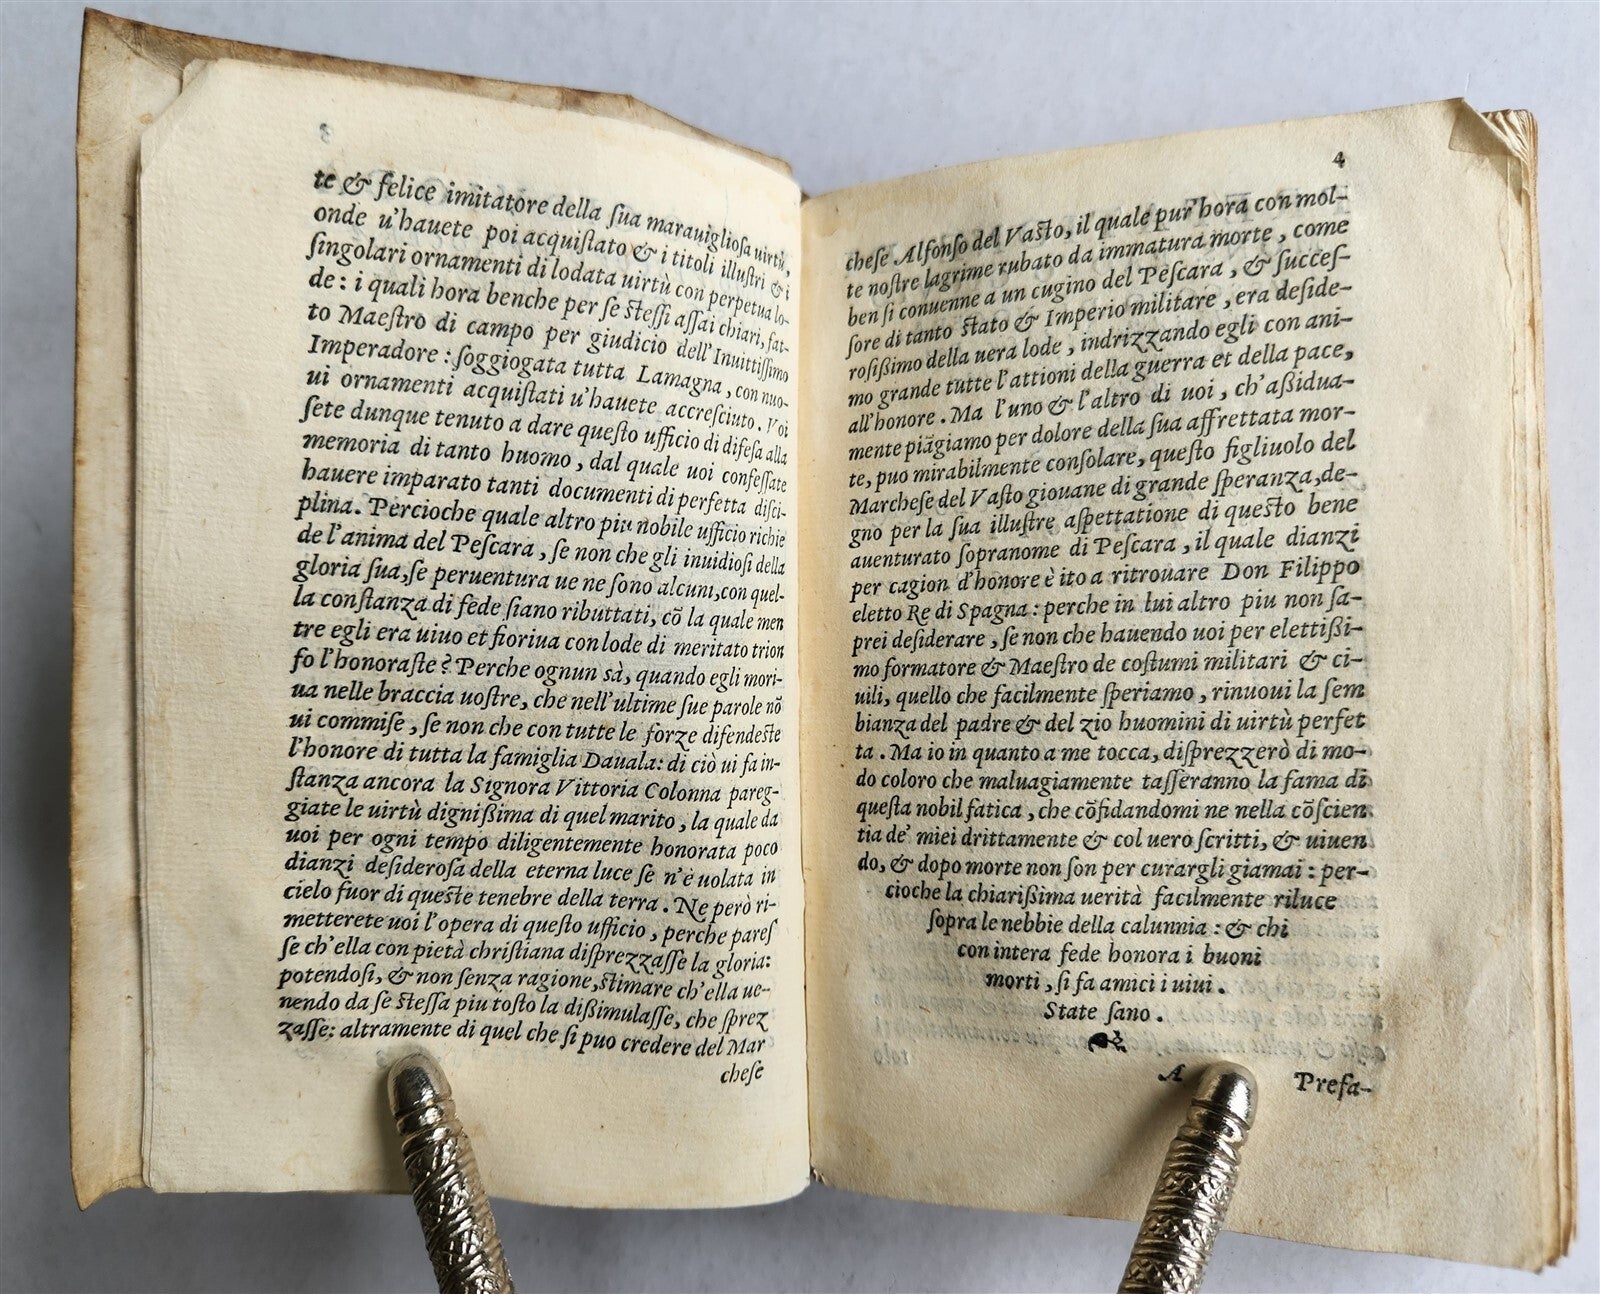 3
te & felice imitatore della ſua marauiglioſa uirtù,
onde u'hauete poi acquiſtato & i titoli illuſtri & i
ſingolari ornamenti di lodata uirtù con perpetua lo-
de: i quali hora benche per ſe ſteſſi aſſai chiari, fat-
to Maeſtro di campo per giudicio dell'Inuittiſſimo
Imperadore: ſoggiogata tutta Lamagna, con nuo-
ui ornamenti acquiſtati u'hauete accreſciuto. Voi
ſete dunque tenuto a dare queſto ufficio di difeſa alla
memoria di tanto huomo, dal quale uoi confeſſate
hauere imparato tanti documenti di perfetta diſci-
plina. Percioche quale altro piu nobile ufficio richie
de l'anima del Peſcara, ſe non che gli inuidioſi della
gloria ſua, ſe peruentura ue ne ſono alcuni, con quel-
la conſtanza di fede ſiano ributtati, cõ la quale men
tre egli era uiuo et fioriua con lode di meritato trion
fo l'honoraſte? Perche ognun sà, quando egli mori-
ua nelle braccia uoſtre, che nell'ultime ſue parole nõ
ui commiſe, ſe non che con tutte le forze difendeſte
l'honore di tutta la famiglia Dauala: di ciò ui fa in-
ſtanza ancora la Signora Vittoria Colonna pareg-
giate le uirtù digniſſima di quel marito, la quale da
uoi per ogni tempo diligentemente honorata poco
dianzi deſideroſa della eterna luce ſe n'è uolata in
cielo fuor di queſte tenebre della terra. Ne però ri-
metterete uoi l'opera di queſto ufficio, perche pareſ
ſe ch'ella con pietà chriſtiana diſprezzaſſe la gloria:
potendoſi, & non ſenza ragione, ſtimare ch'ella ue-
nendo da ſe ſteſſa piu toſto la diſſimulaſſe, che ſprez
zaſſe: altramente di quel che ſi puo credere del Mar
cheſe
4
cheſe Alfonſo del Vaſto, il quale pur'hora con mol-
te noſtre lagrime rubato da immatura morte, come
ben ſi conuenne a un cugino del Peſcara, & ſucceſ-
ſore di tanto ſtato & Imperio militare, era deſide-
roſiſſimo della uera lode, indrizzando egli con ani-
mo grande tutte l'attioni della guerra et della pace,
all'honore. Ma l'uno & l'altro di uoi, ch'aßidua-
mente piãgiamo per dolore della ſua affrettata mor-
te, puo mirabilmente conſolare, queſto figliuolo del
Marcheſe del Vaſto giouane di grande ſperanza, de-
gno per la ſua illuſtre aſpettatione di queſto bene
auenturato ſopranome di Peſcara, il quale dianzi
per cagion d'honore è ito a ritrouare Don Filippo
eletto Re di Spagna: perche in lui altro piu non ſa-
prei deſiderare, ſe non che hauendo uoi per elettißi-
mo formatore & Maeſtro de coſtumi militari & ci-
uili, quello che facilmente ſperiamo, rinuoui la ſem
bianza del padre & del zio huomini di uirtù perfet
ta. Ma io in quanto a me tocca, diſprezzerò di mo-
do coloro che maluagiamente taſſeranno la fama di
queſta nobil fatica, che cõfidandomi ne nella cõſcien
tia de' miei drittamente & col uero ſcritti, & uiuen
do, & dopo morte non ſon per curargli giamai: per-
cioche la chiarißima uerità facilmente riluce
ſopra le nebbie della calunnia: & chi
con intera fede honora i buoni
morti, ſi fa amici i uiui.
State ſano.
A Prefa-